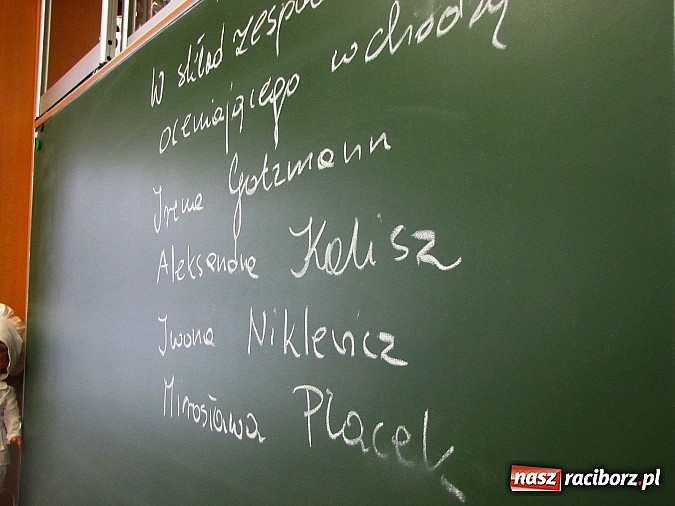 W skład zespołu
oceniającego wchodzą
Irena Gotzmann
Aleksandra Kalisz
Iwona Niklewicz
Mirosława Płacek
nasz raciborz.pl